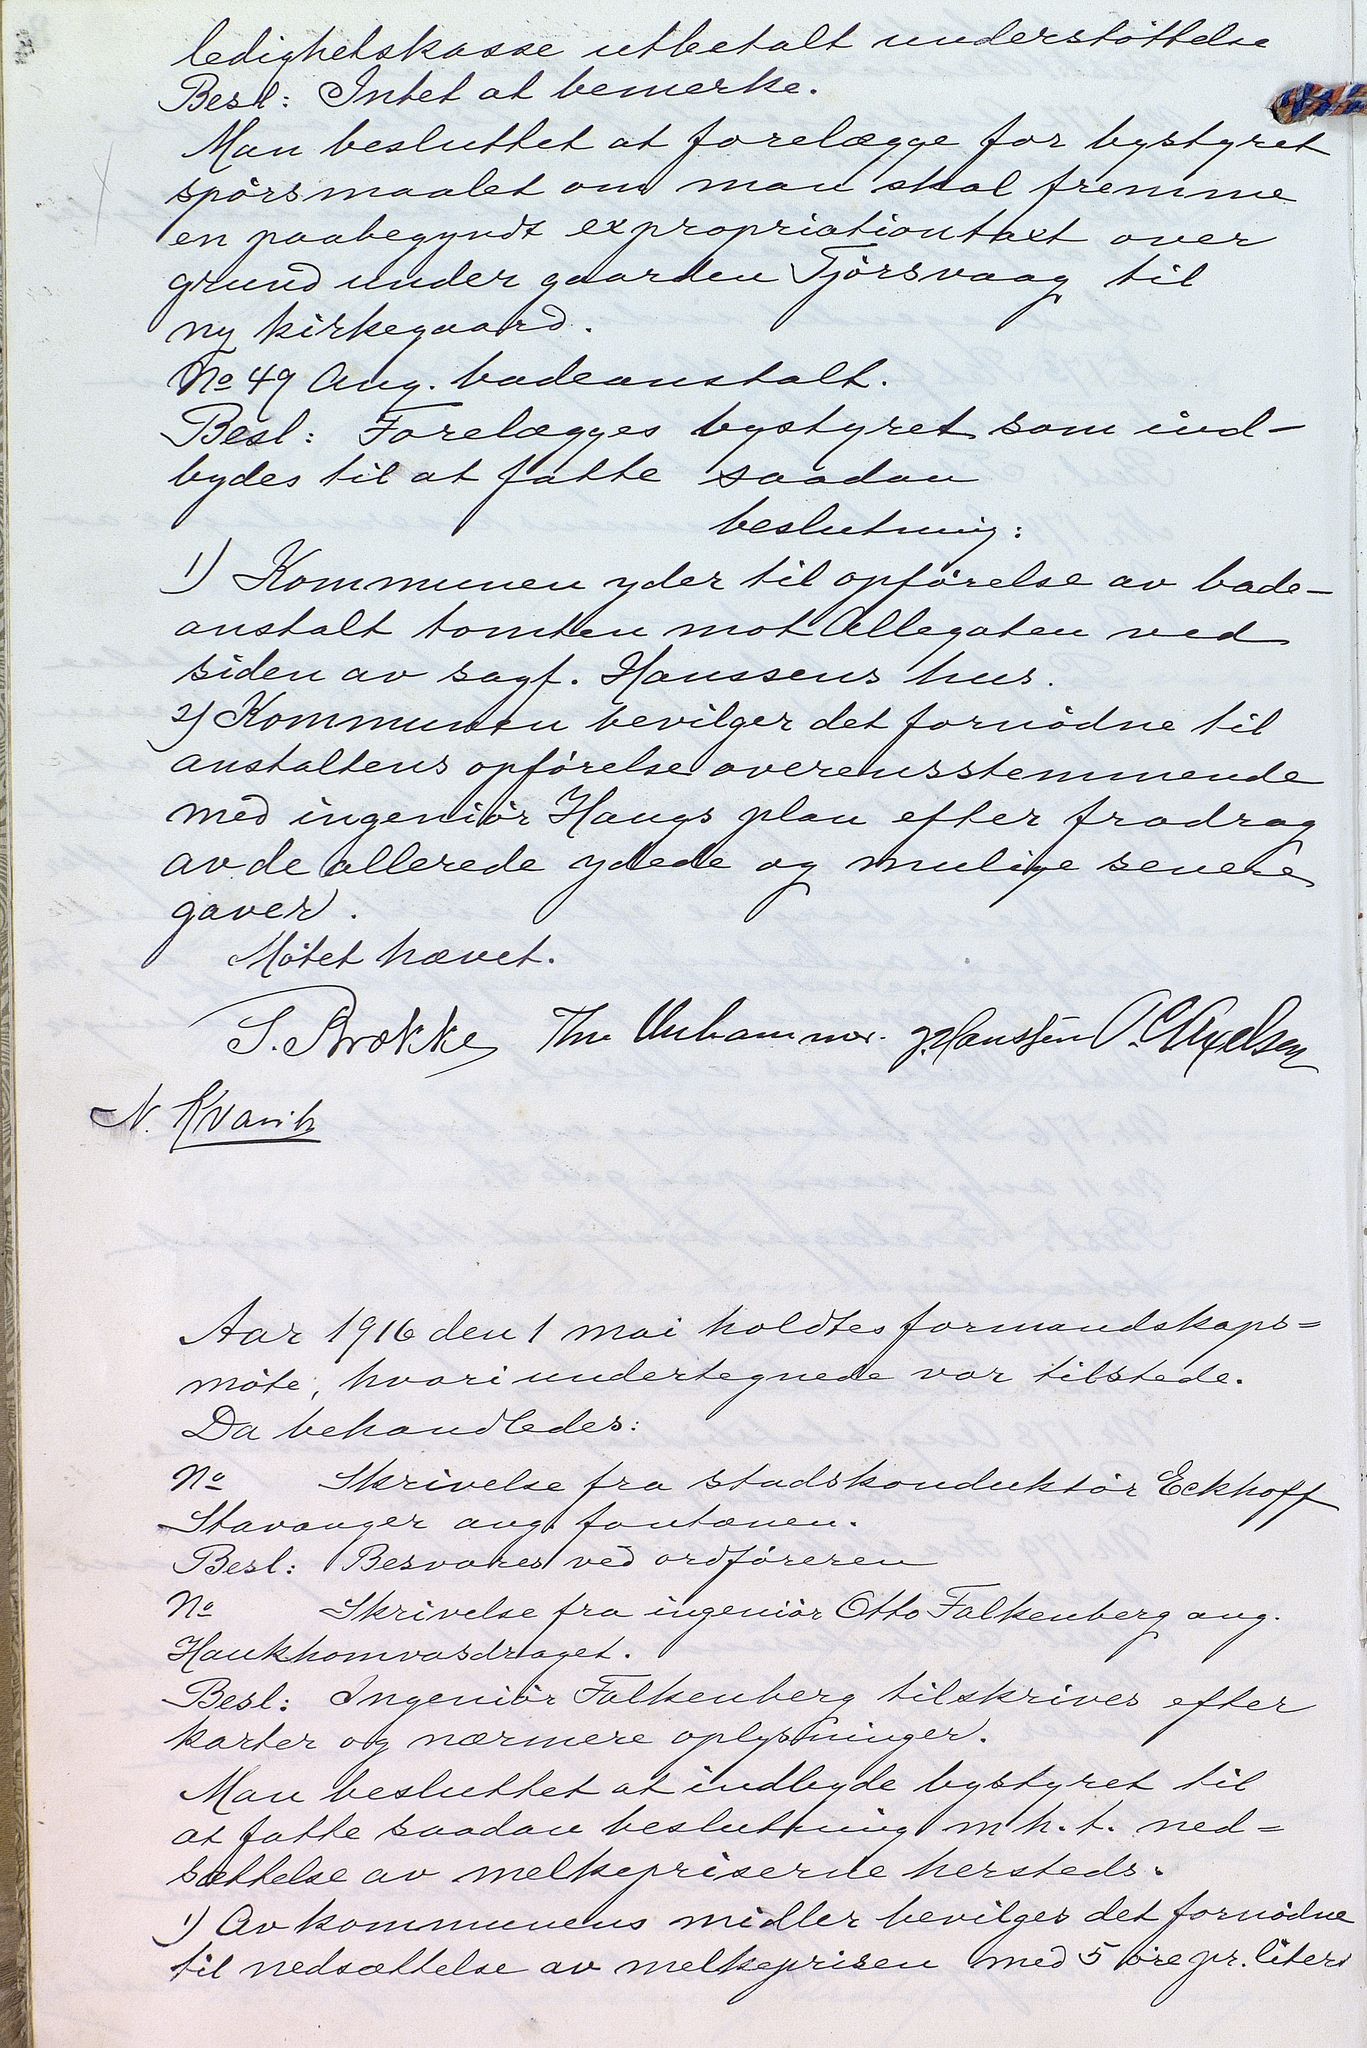 ledighetskasse utbetalt understöttelse
Besl: Intet at bemerke.
Man besluttet at forelægge for bystyret
spörsmaalet om man skal fremme
en paabegyndt expropriationtaxt over
grund under gaarden Tjörsvaag til
ny kirkegaard.
No 49 Ang. badeanstalt.
Besl: Forelægges bystyret som ind-
bydes til at fatte saadan
beslutning:
1) Kommunen yder til opförelse av bade-
anstalt tomten mot Allegaten ved
siden av sagf. Hanssens hus.
2) Kommunen bevilger det fornödne til
anstaltens opförelse overensstemmende
med ingeniör Haugs plan efter fradrag
av de allerede ydede og mulige senere
gaver.
Mötet hævet.
S. Brøkke Thv Unhammer. J. Hanssen O. C. Axelsen
N. Kvavik
Aar 1916 den 1 mai holdtes formandskaps=
möte, hvori undertegnede var tilstede.
Da behandledes:
No Skrivelse fra stadskonduktör Eckhoff
Stavanger ang. fontænen.
Besl: Besvares ved ordföreren
No Skrivelse fra ingeniör Otto Falkenberg ang.
Haukhomvasdraget.
Besl: Ingeniör Falkenberg tilskrives efter
karter og nærmere oplysninger.
Man besluttet at indbyde bystyret til
at fatte saadan beslutning m.h.t. ned=
sættelse av melkepriserne hersteds.
1) Av kommunens midler bevilges det fornödne
til nedsættelse av melkeprisen med 5 öre pr. liter